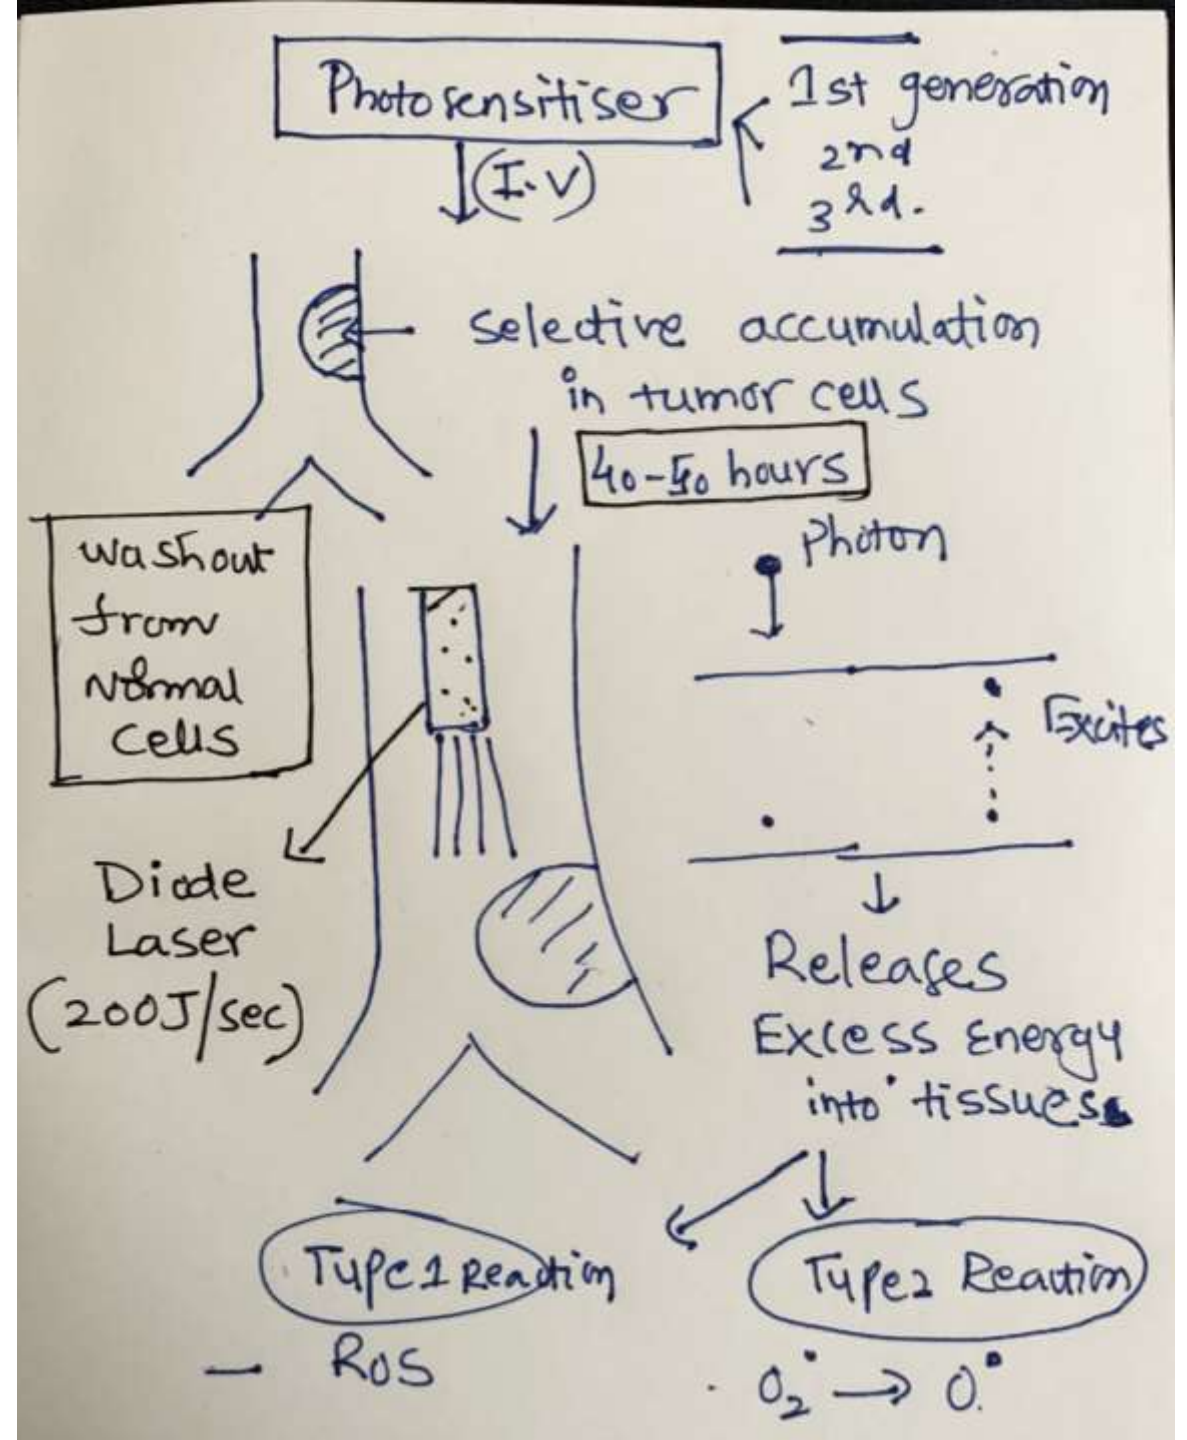 Photosensitiser
1st generation
2nd
3rd.
(I.V)
selective accumulation
in tumor cells
40-50 hours
washout
from
Normal
cells
Photon
Excites
Diode
Laser
(200J/sec)
Releases
Excess Energy
into tissues
Type1 Reaction
- ROS
Type2 Reaction
O₂• → O•